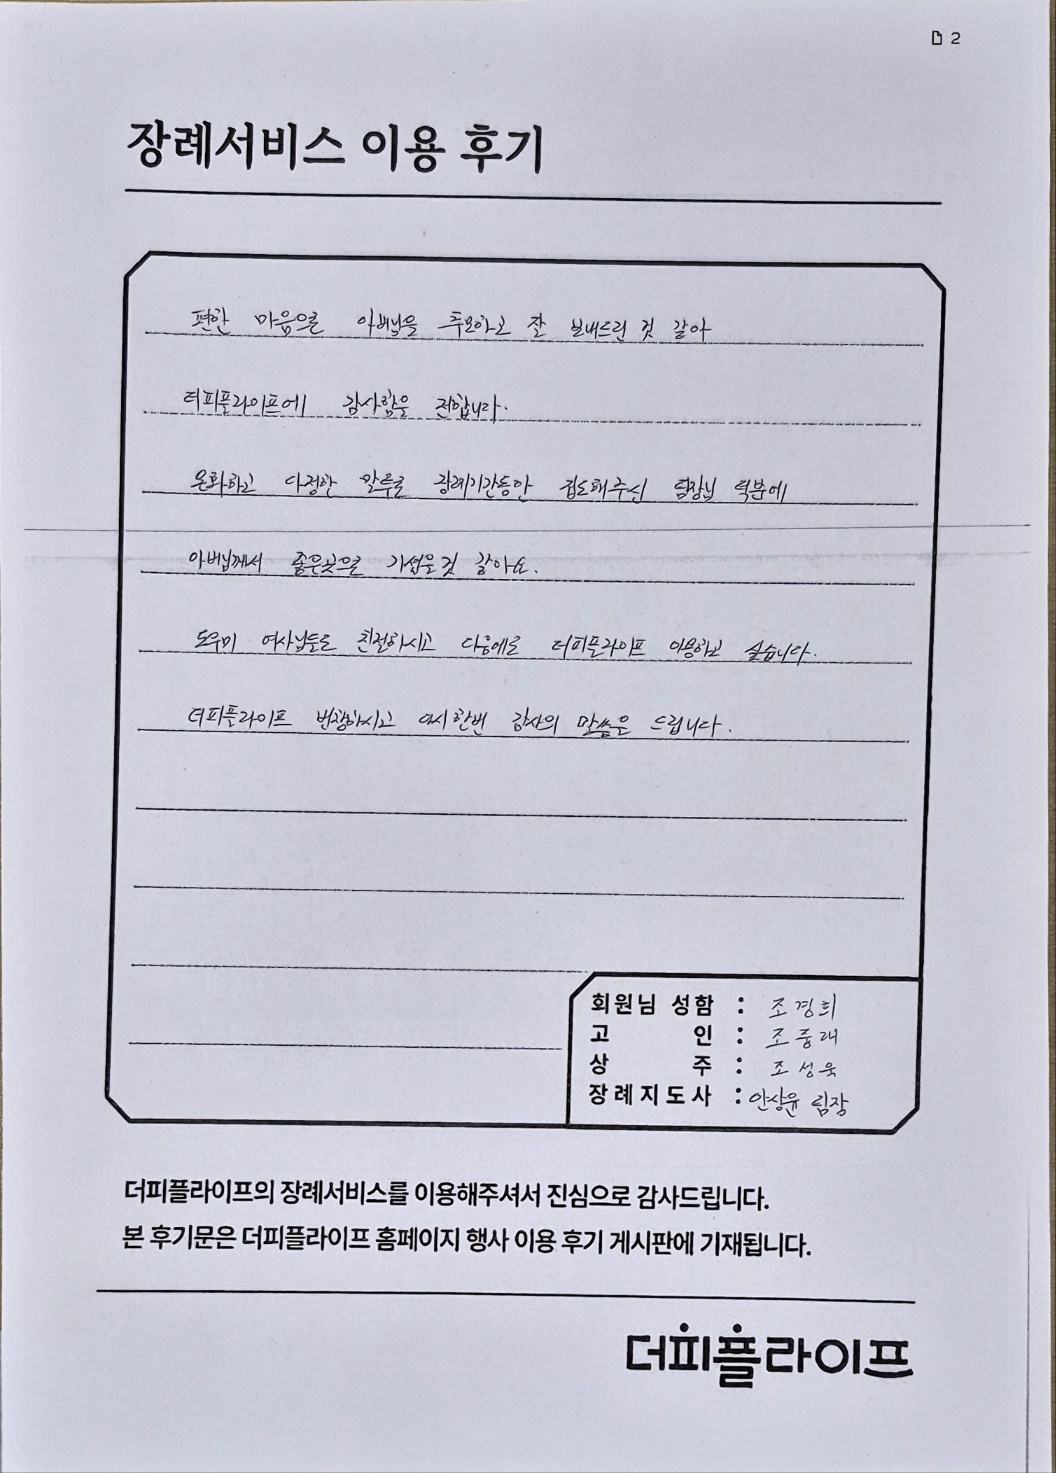 2
장례서비스 이용 후기
편한 마음으로 아버님을 추모하고 잘 보내드린 것 같아
더피플라이프에 감사함을 전합니다.
온화하고 다정한 말투로 장례기간동안 집도해주신 팀장님 덕분에
아버님께서 좋은곳으로 가셨을것 같아요.
도우미 여사님들도 친절하시고 다음에도 더피플라이프 이용하고 싶습니다.
더피플라이프 번창하시고 다시한번 감사의 말씀을 드립니다.
회원님 성함 : 조경희
고 인 : 조중래
상 주 : 조성욱
장례지도사 : 안상윤 팀장
더피플라이프의 장례서비스를 이용해주셔서 진심으로 감사드립니다.
본 후기문은 더피플라이프 홈페이지 행사 이용 후기 게시판에 기재됩니다.
더피플라이프